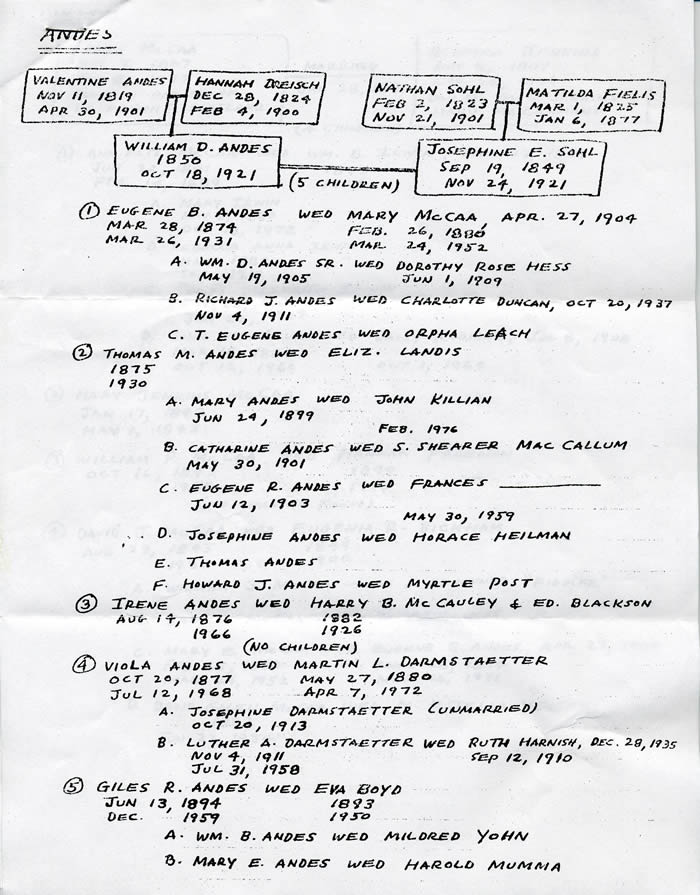 ANDES
VALENTINE ANDES
NOV 11, 1819
APR 30, 1901
HANNAH DREISCH
DEC 28, 1824
FEB 4, 1900
NATHAN SOHL
FEB 2, 1823
NOV 21, 1901
MATILDA FIELIS
MAR 1, 1825
JAN 6, 1877
WILLIAM D. ANDES
1850
OCT 18, 1921
(5 CHILDREN)
JOSEPHINE E. SOHL
SEP 19, 1849
NOV 24, 1921
① EUGENE B. ANDES WED MARY McCAA APR. 27, 1904
MAR 28, 1874 FEB. 26, 1880
MAR 26, 1931 MAR. 24, 1952
A. WM. D. ANDES SR. WED DOROTHY ROSE HESS
MAY 19, 1905 JUN 1, 1909
B. RICHARD J. ANDES WED CHARLOTTE DUNCAN, OCT 20, 1937
NOV 4, 1911
C. T. EUGENE ANDES WED ORPHA LEACH
② THOMAS M. ANDES WED ELIZ. LANDIS
1875
1930
A. MARY ANDES WED JOHN KILLIAN
JUN 24, 1899
FEB. 1976
B. CATHARINE ANDES WED S. SHEARER MAC CALLUM
MAY 30, 1901
C. EUGENE R. ANDES WED FRANCES ________
JUN 12, 1903
MAY 30, 1959
D. JOSEPHINE ANDES WED HORACE HEILMAN
E. THOMAS ANDES
F. HOWARD J. ANDES WED MYRTLE POST
③ IRENE ANDES WED HARRY B. McCAULEY & ED. BLACKSON
AUG 14, 1876 1882
1966 1926
(NO CHILDREN)
④ VIOLA ANDES WED MARTIN L. DARMSTAETTER
OCT 20, 1877 MAY 27, 1880
JUL 12, 1968 APR 7, 1972
A. JOSEPHINE DARMSTAETTER (UNMARRIED)
OCT 20, 1913
B. LUTHER A. DARMSTAETTER WED RUTH HARNISH, DEC. 28, 1935
NOV 4, 1911 SEP 12, 1910
JUL 31, 1958
⑤ GILES R. ANDES WED EVA BOYD
JUN 13, 1894 1893
DEC. 1959 1950
A. WM. B. ANDES WED MILDRED YOHN
B. MARY E. ANDES WED HAROLD MUMMA